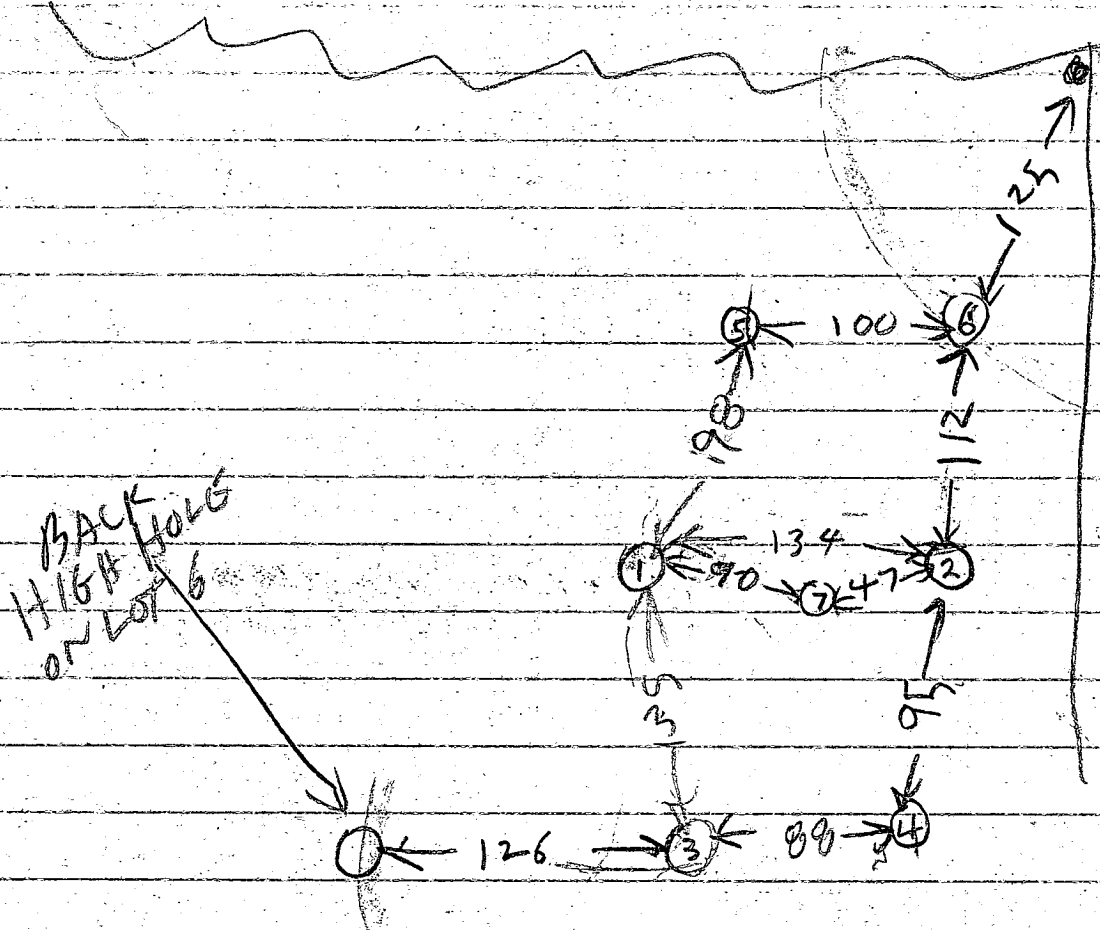 125
5 100 6
98
112
BACK
HIGH HOLE
ON LOT 6
134
1 90 7 47 2
135
95
126 3 88 4